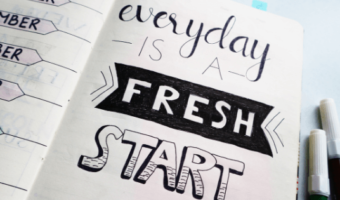 MBER
BER
ER
everyday
IS A
FRESH
START